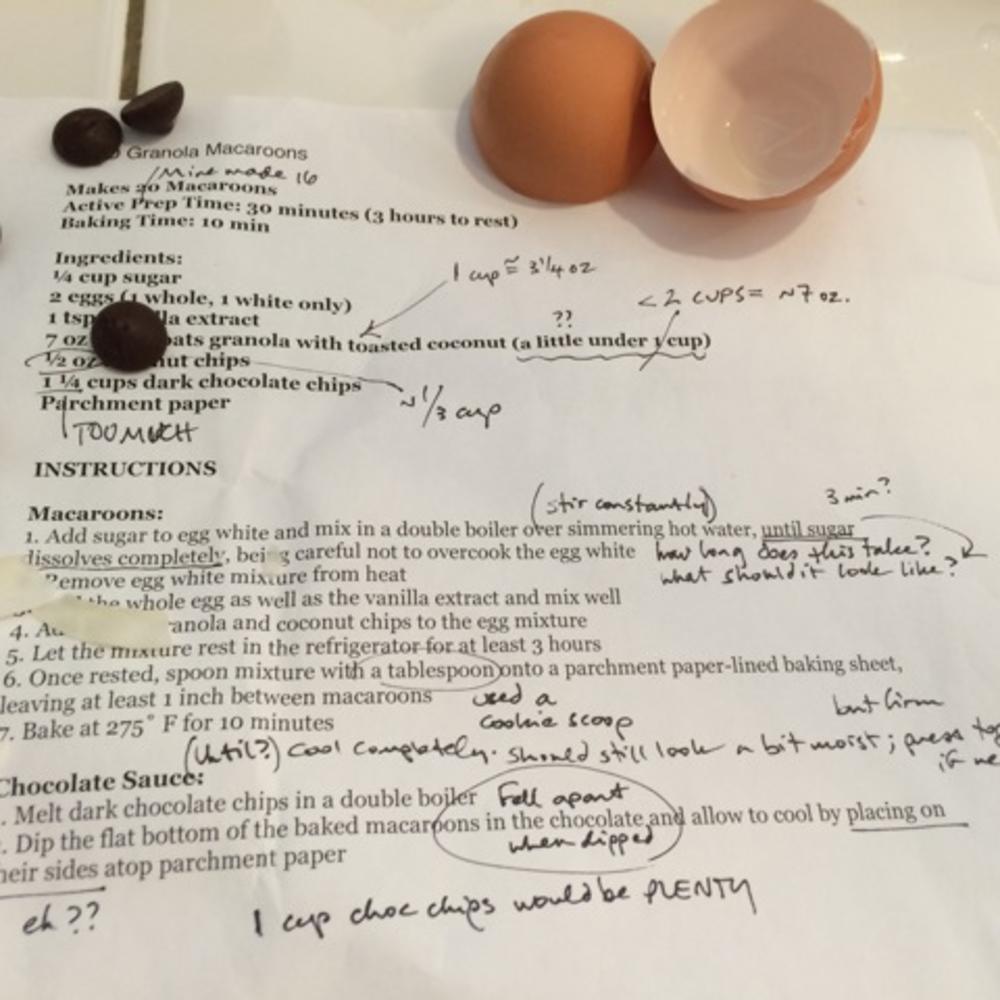 Granola Macaroons
Mine made 16
Makes 20 Macaroons
Active Prep Time: 30 minutes (3 hours to rest)
Baking Time: 10 min
Ingredients:
1 cup ≅ 3 1/4 oz
¼ cup sugar
< 2 CUPS = ~7 oz.
2 eggs (1 whole, 1 white only)
??
1 tsp la extract
7 oz ats granola with toasted coconut (a little under 1 cup)
½ oz nut chips
1 ¼ cups dark chocolate chips
~1/3 cup
Parchment paper
TOO MUCH
INSTRUCTIONS
(stir constantly) 3 min?
Macaroons:
1. Add sugar to egg white and mix in a double boiler over simmering hot water, until sugar
dissolves completely, being careful not to overcook the egg white how long does this take?
what should it look like?
Remove egg white mixture from heat
the whole egg as well as the vanilla extract and mix well
4. Ad anola and coconut chips to the egg mixture
5. Let the mixture rest in the refrigerator for at least 3 hours
6. Once rested, spoon mixture with a tablespoon onto a parchment paper-lined baking sheet,
leaving at least 1 inch between macaroons used a
cookie scoop
but firm
7. Bake at 275° F for 10 minutes
(Until?) Cool completely. Should still look a bit moist; press to
if ne
Chocolate Sauce:
. Melt dark chocolate chips in a double boiler Fell apart
. Dip the flat bottom of the baked macaroons in the chocolate and allow to cool by placing on
when dipped
heir sides atop parchment paper
eh??
1 cup choc chips would be PLENTY